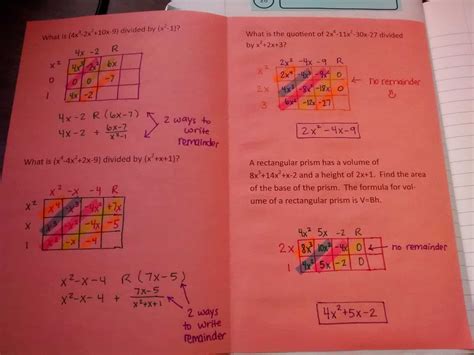 What is (4x³-2x²+10x-9) divided by (x²-1)?
4x -2 R
x² 4x³ -2x² 6x
0 0 0 -7
1 4x -2
4x-2 R(6x-7)
4x-2 + 6x-7
x²-1
2 ways to
write
remainder
What is (x⁴-4x²+2x-9) divided by (x²+x+1)?
x² -x -4 R
x² x⁴ -x³ -4x² +7x
x x³ -x² -4x -5
1 x² -x -4
x²-x-4 R(7x-5)
x²-x-4 + 7x-5
x²+x+1
2 ways
to write
remainder
What is the quotient of 2x⁴-11x²-30x-27 divided
by x²+2x+3?
2x² -4x -9 R
x² 2x⁴ -4x³ -9x² 0
2x 4x³ -8x² -18x 0
3 6x² -12x -27
no remainder
2x²-4x-9
A rectangular prism has a volume of
8x³+14x²+x-2 and a height of 2x+1. Find the
area of the base of the prism. The formula for vol-
ume of a rectangular prism is V=Bh.
4x² 5x -2 R
2x 8x³ 10x² -4x 0
1 4x² 5x -2 0
no remainder
4x²+5x-2